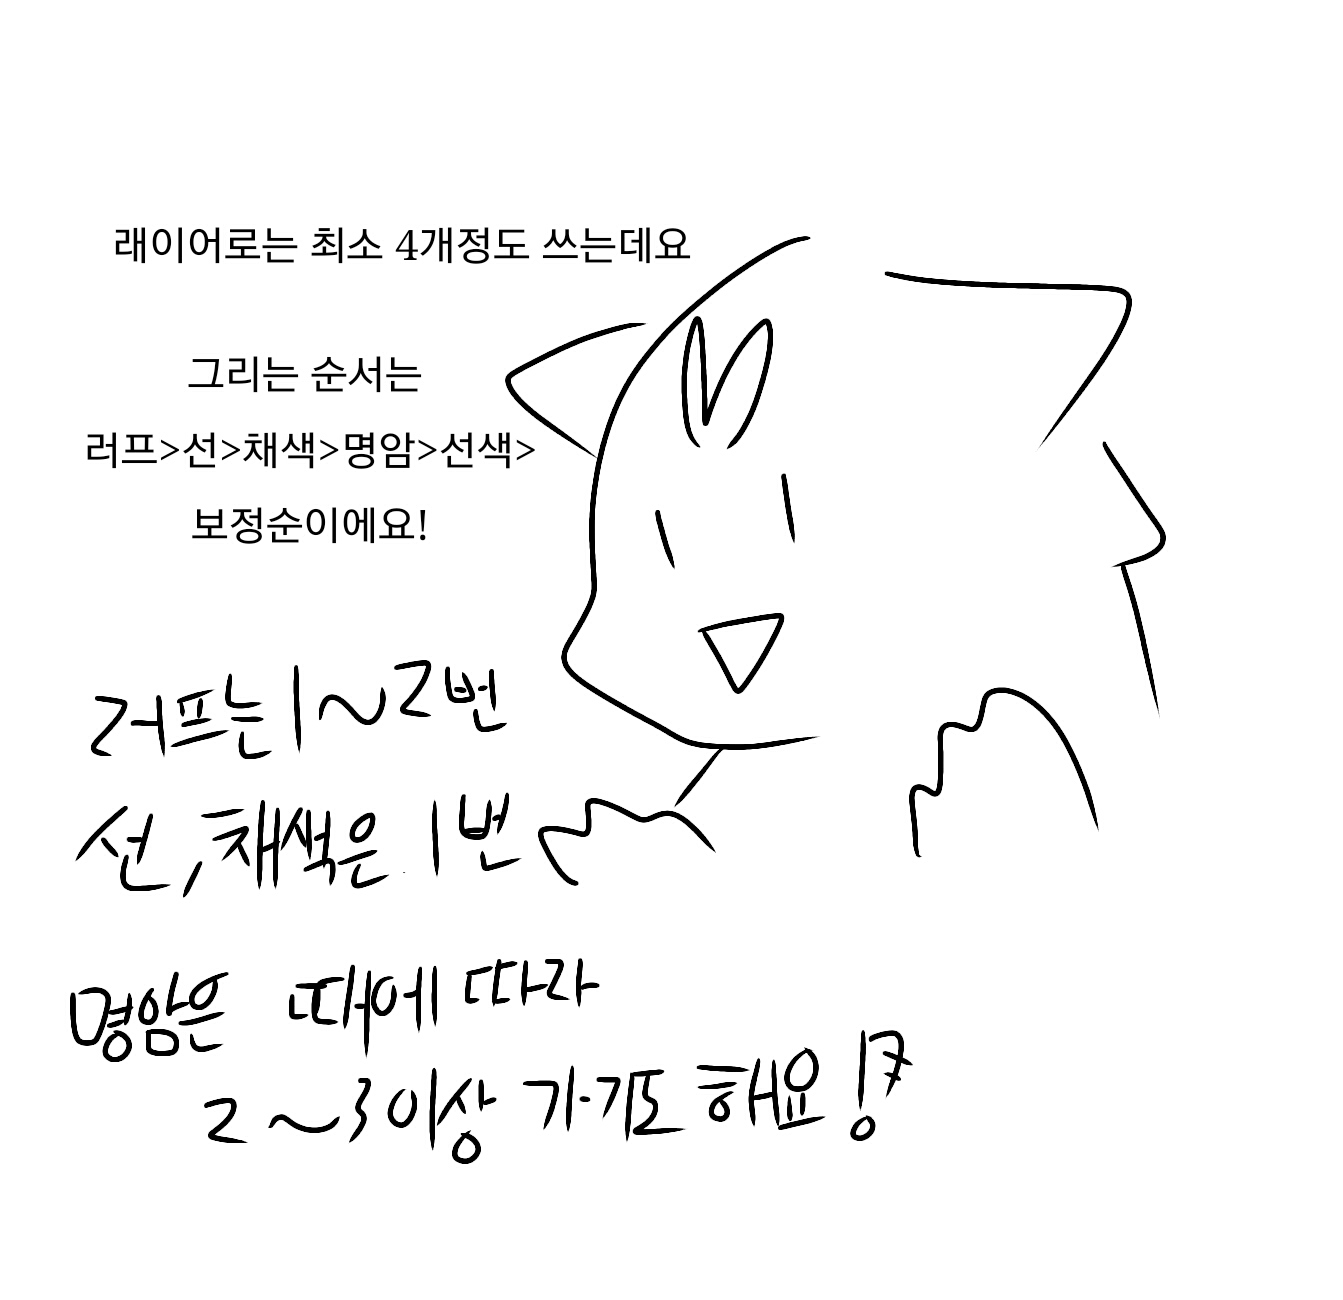 래이어로는 최소 4개정도 쓰는데요
그리는 순서는
러프>선>채색>명암>선색>
보정순이에요!
러프는 1~2번
선, 채색은 1번
명암은 때에 따라
2~3이상 가기도 해요!